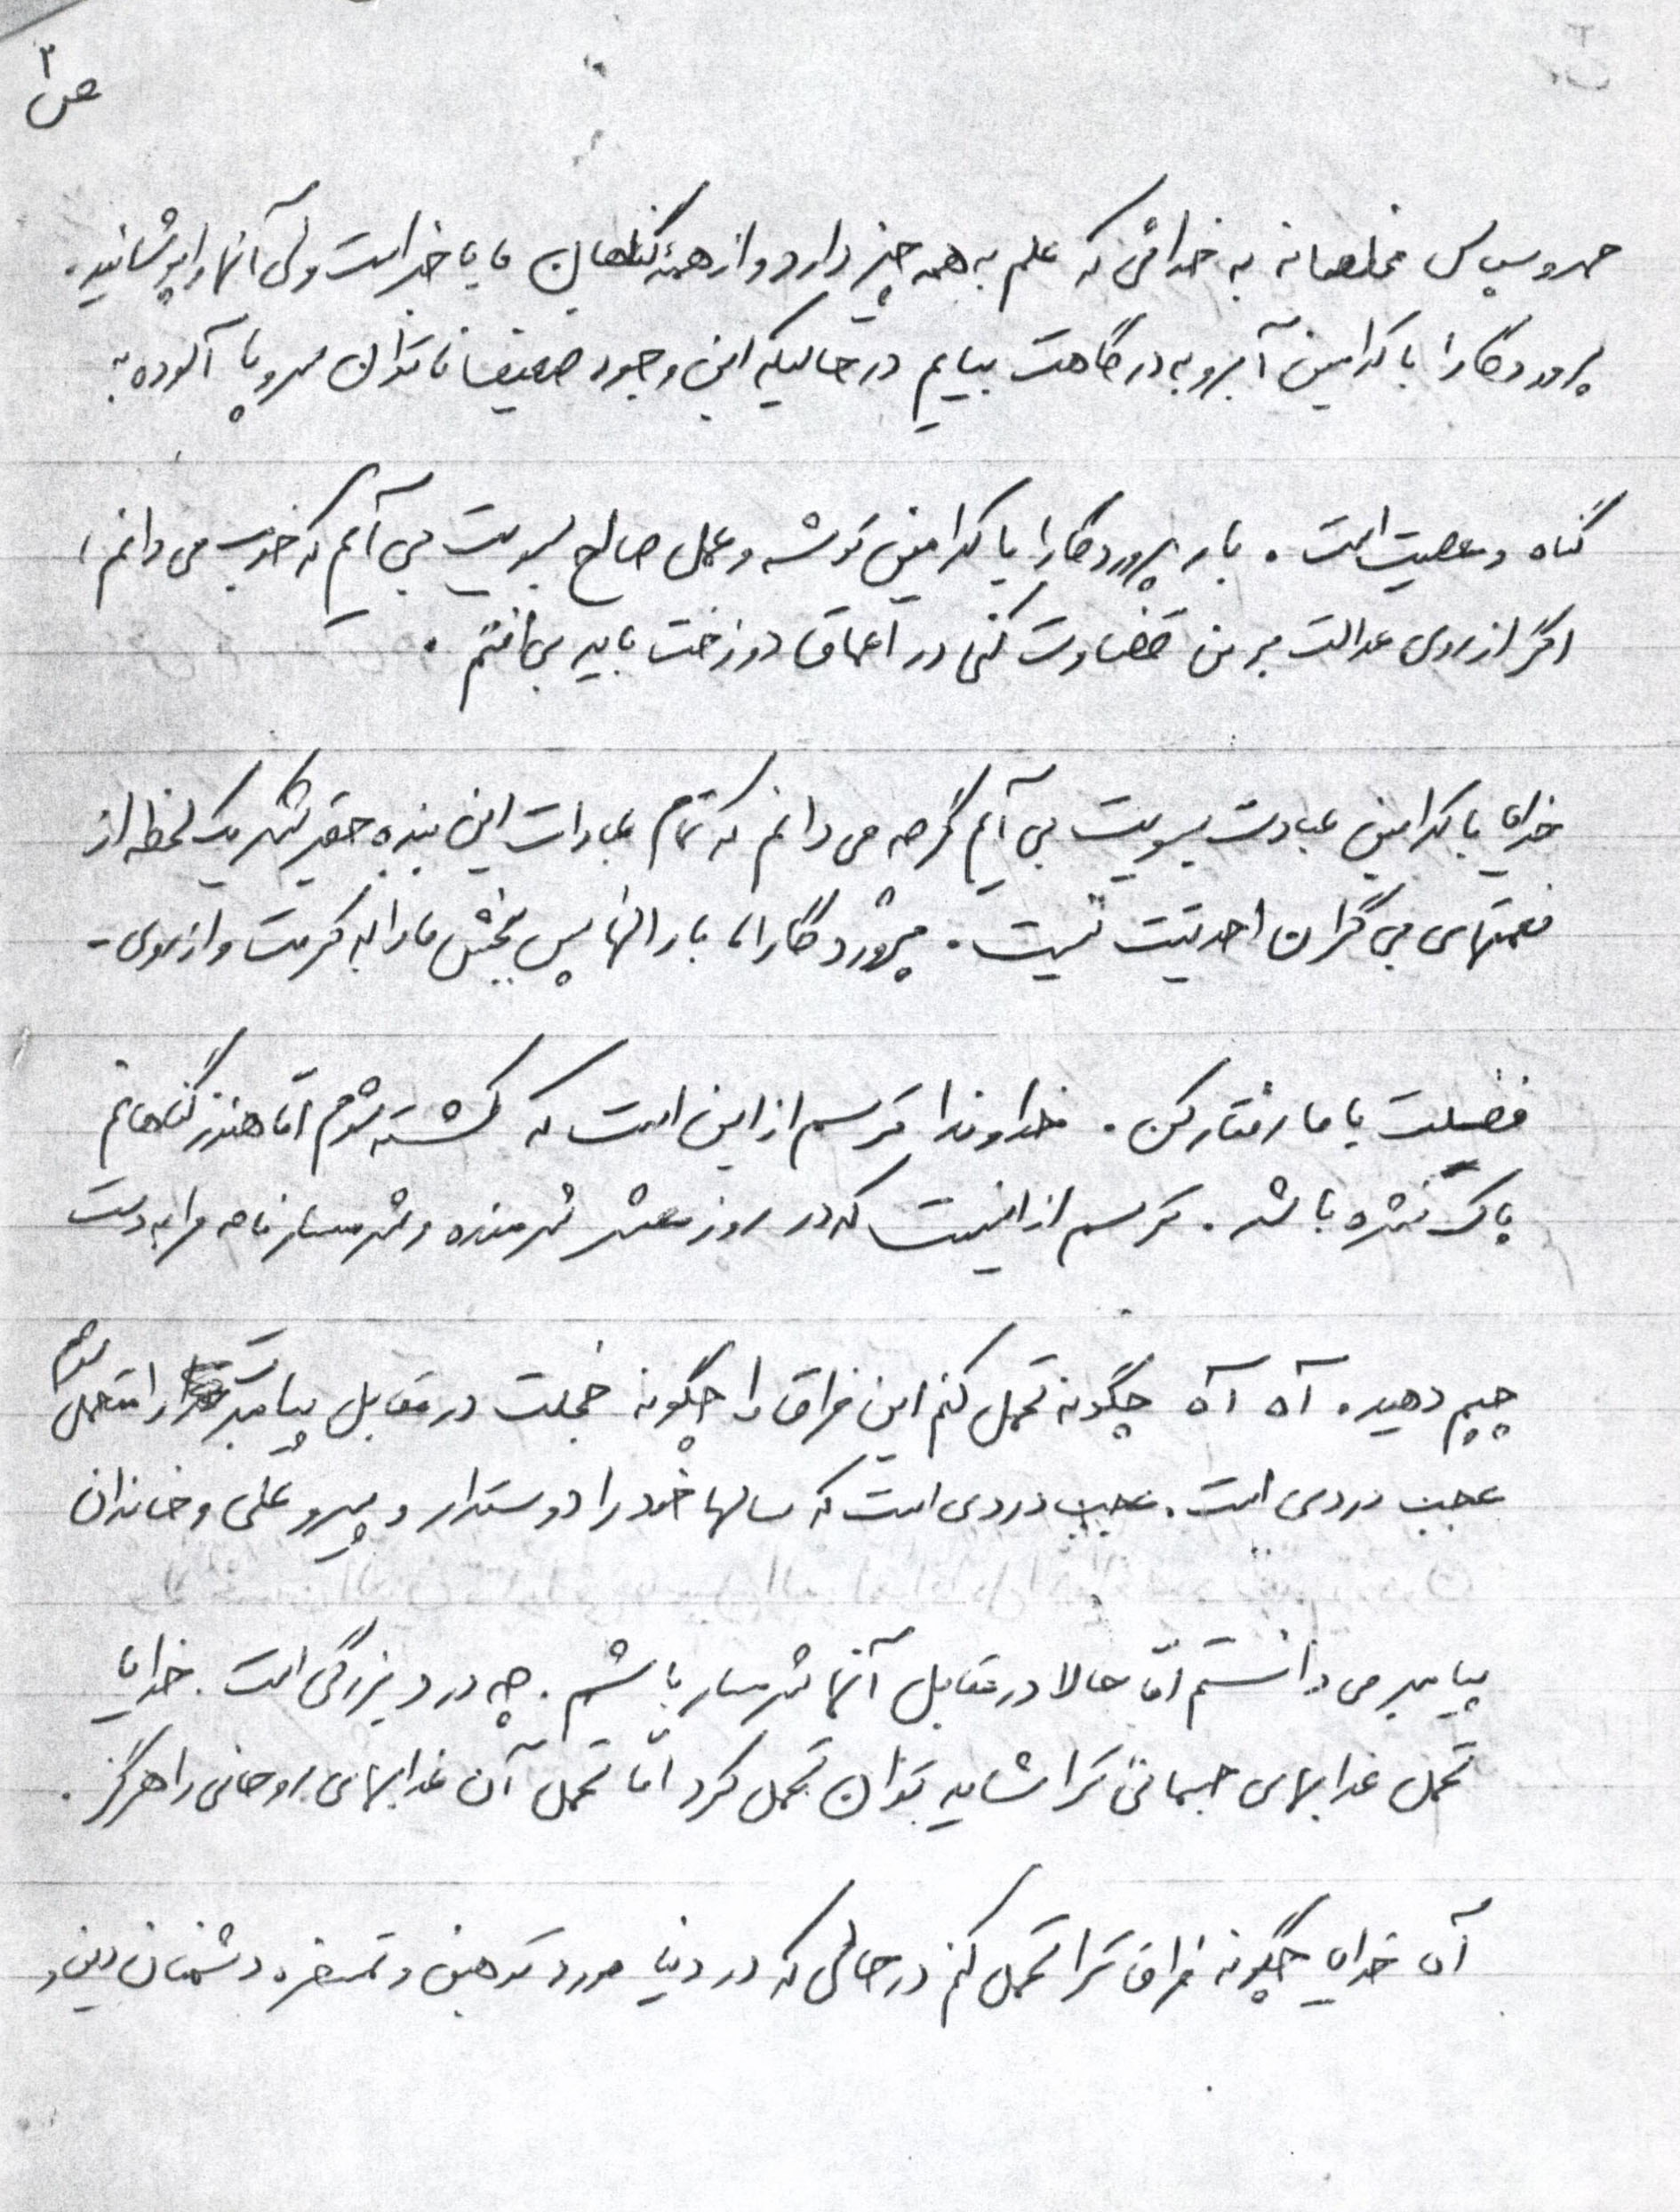 ص ۲
حمد و سپاس مخلصانه به خدائی که علم به همه چیز دارد و از همهٔ گناهان ما با خبر است ولی آنها را پوشانید.
پروردگارا با کدامین آبرو به درگاهت بیایم در حالیکه این وجود ضعیف ناتوان سروپا آلوده به
گناه و معصیت است. بار پروردگارا با کدامین توشه و عمل صالح بسویت می آیم که خوب می دانم،
اگر از روی عدالت بر من قضاوت کنی در اعماق دوزخت باید بیافتم.
خدایا با کدامین عبادت بسویت می آیم گرچه می دانم که تمام عبادات این بنده حقیر شکر یک لحظه از
نعمتهای بی گران احدیتت نیست. پروردگارا، بار الها پس ببخش ما را به کرمت و از روی -
فضیلت با ما رفتار کن. خداوندا ترسم از این است که کشته شوم امّا هنوز گناهانم
پاک نشده باشد. ترسم از اینست که در روز محشر شرمنده و شرمسار نامه مرا به دست
چپم دهید. آه آه چگونه تحمل کنم این فراق را چگونه خجلت در مقابل پیامبرت را متحمل شوم
عجب دردی است. عجب دردی است که سالها خود را دوستدار و پیرو علی و خاندان
پیامبر می دانستم امّا حالا در مقابل آنها شرمسار باشم. چه درد بزرگی است. خدایا
تحمل عذابهای جسمانی ترا شاید بتوان تحمل کرد امّا تحمل آن عذابهای روحانی را هرگز.
آه خدایا چگونه فراق ترا تحمل کنم در حالی که در دنیا مورد توهین و تمسخره دشمنان دین و